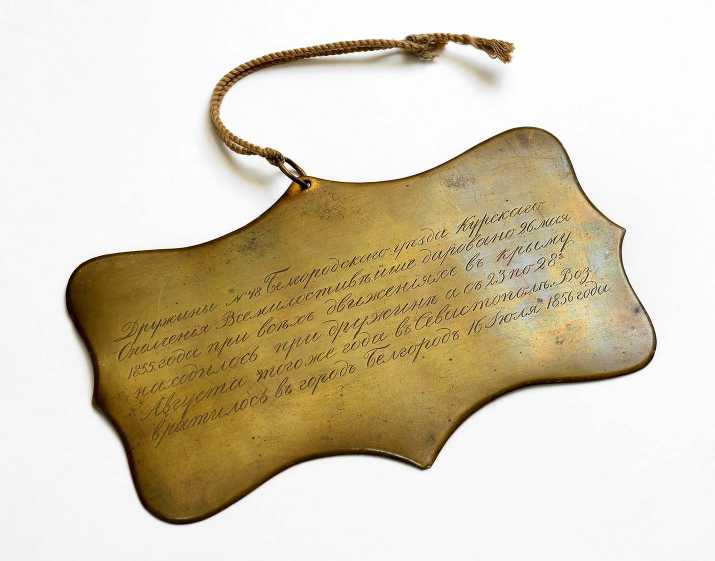 Дружины №48 Белгородскаго уѣзда Курскаго
Ополченія Всемилостивѣйше даровано 26 мая
1855 года при всѣхъ движеніяхъ въ Крыму
находилось при дружинѣ а съ 23 по 28е
Августа того же года въ Севастополѣ. Воз
вратилось въ городъ Белгородъ 16 Іюля 1856 года